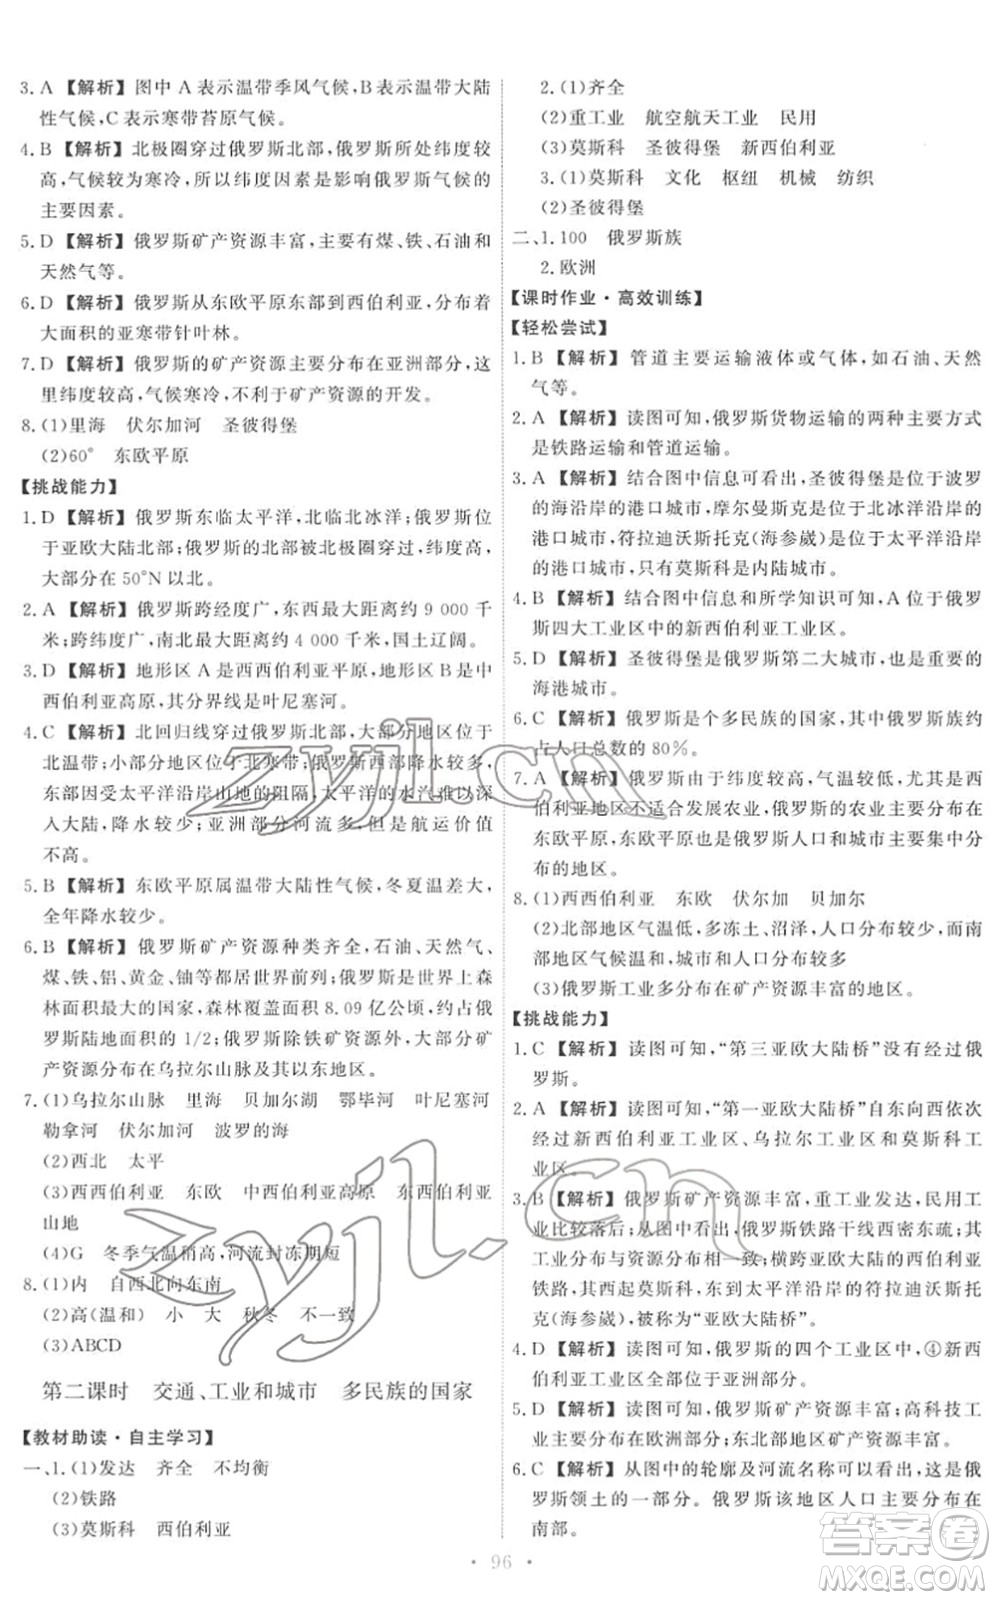 3. A 【解析】图中 A 表示温带季风气候,B 表示温带大陆
性气候,C 表示寒带苔原气候。
4. B 【解析】北极圈穿过俄罗斯北部,俄罗斯所处纬度较
高,气候较为寒冷,所以纬度因素是影响俄罗斯气候的
主要因素。
5. D 【解析】俄罗斯矿产资源丰富,主要有煤、铁、石油和
天然气等。
6. D 【解析】俄罗斯从东欧平原东部到西伯利亚,分布着
大面积的亚寒带针叶林。
7. D 【解析】俄罗斯的矿产资源主要分布在亚洲部分,这
里纬度较高,气候寒冷,不利于矿产资源的开发。
8. (1)里海 伏尔加河 圣彼得堡
(2)60° 东欧平原
【挑战能力】
1. D 【解析】俄罗斯东临太平洋,北临北冰洋;俄罗斯位
于亚欧大陆北部;俄罗斯的北部被北极圈穿过,纬度高,
大部分在 50°N 以北。
2. A 【解析】俄罗斯跨经度广,东西最大距离约 9 000 千
米;跨纬度广,南北最大距离约 4 000 千米,国土辽阔。
3. D 【解析】地形区 A 是西西伯利亚平原,地形区 B 是中
西伯利亚高原,其分界线是叶尼塞河。
4. C 【解析】北回归线穿过俄罗斯北部,大部分地区位于
北温带;小部分地区位于北寒带;西伯利亚地区降水较
少,因为太平洋沿岸山地的阻隔,太平洋的水汽难以深
入大陆,降水较少;亚洲部分河流多,但航运价值
不高。
5. B 【解析】东欧平原属温带大陆性气候,冬夏温差大,
全年降水较少。
6. B 【解析】俄罗斯矿产资源种类齐全,石油、天然气、
煤、铁、铝、黄金、铀等都居世界前列;俄罗斯是世界上森
林面积最大的国家,森林覆盖面积 8.09 亿公顷,约占俄
罗斯陆地面积的 1/2;俄罗斯除铁矿资源外,大部分矿
产资源分布在乌拉尔山脉及其以东地区。
7. (1)乌拉尔山脉 里海 贝加尔湖 鄂毕河 叶尼塞河
勒拿河 伏尔加河 波罗的海
(2)西北 太平
(3)西西伯利亚 东欧 中西伯利亚高原 东西伯利亚
山地
(4)G 冬季气温稍高,河流封冻期短
8. (1)内 自西北向东南
(2)高(温和) 小 大 秋冬 不一致
(3)ABCD
第二课时 交通、工业和城市 多民族的国家
【教材助读·自主学习】
一、1. (1)发达 齐全 不均衡
(2)铁路
(3)莫斯科 西伯利亚
2. (1)齐全
(2)重工业 航空航天工业 民用
(3)莫斯科 圣彼得堡 新西伯利亚
3. (1)莫斯科 文化 枢纽 机械 纺织
(2)圣彼得堡
二、1. 100 俄罗斯族
2. 欧洲
【课时作业·高效训练】
【轻松尝试】
1. B 【解析】管道主要运输液体或气体,如石油、天然
气等。
2. A 【解析】读图可知,俄罗斯货物运输的两种主要方式
是铁路运输和管道运输。
3. A 【解析】结合图中信息可看出,圣彼得堡是位于波罗
的海沿岸的港口城市,摩尔曼斯克是位于北冰洋沿岸的
港口城市,符拉迪沃斯托克(海参崴)是位于太平洋沿岸
的港口城市,只有莫斯科是内陆城市。
4. B 【解析】结合图中信息和所学知识可知,A 位于俄罗
斯四大工业区中的新西伯利亚工业区。
5. D 【解析】圣彼得堡是俄罗斯第二大城市,也是重要的
海港城市。
6. C 【解析】俄罗斯是个多民族的国家,其中俄罗斯族约
占人口总数的 80%。
7. A 【解析】俄罗斯由于纬度较高,气温较低,尤其是西
伯利亚地区不适合发展农业,俄罗斯的农业主要分布在
东欧平原,东欧平原也是俄罗斯人口和城市主要集中分
布的地区。
8. (1)西西伯利亚 东欧 伏尔加 贝加尔
(2)北部地区气温低,多冻土、沼泽,人口分布少,而南
部地区气候温和,城市和人口分布较多
(3)俄罗斯工业多分布在矿产资源丰富的地区。
【挑战能力】
1. C 【解析】读图可知,“第三亚欧大陆桥”没有经过俄
罗斯。
2. A 【解析】读图可知,“第一亚欧大陆桥”自东向西依次
经过新西伯利亚工业区、乌拉尔工业区和莫斯科工
业区。
3. B 【解析】俄罗斯矿产资源丰富,重工业发达,民用工
业比较落后;从图中看出,俄罗斯铁路干线西密东疏;其
工业分布与资源分布大体一致;横跨亚欧大陆的西伯利亚
铁路,西起莫斯科,东到太平洋沿岸的符拉迪沃斯托
克(海参崴),被称为“亚欧大陆桥”。
4. D 【解析】读图可知,俄罗斯的四个工业区中,④新西
伯利亚工业区位于亚洲部分。
5. D 【解析】读图可知,俄罗斯矿产资源丰富;高科技工
业分布在欧洲部分;东北部地区矿产资源丰富。
6. C 【解析】从图中的轮廓及河流名称可以看出,这是俄
罗斯领土的一部分。俄罗斯该地区人口主要分布在
南部。
· 96 ·
zyjl.cn
zyjl.cn
答案圈
MXQE.COM